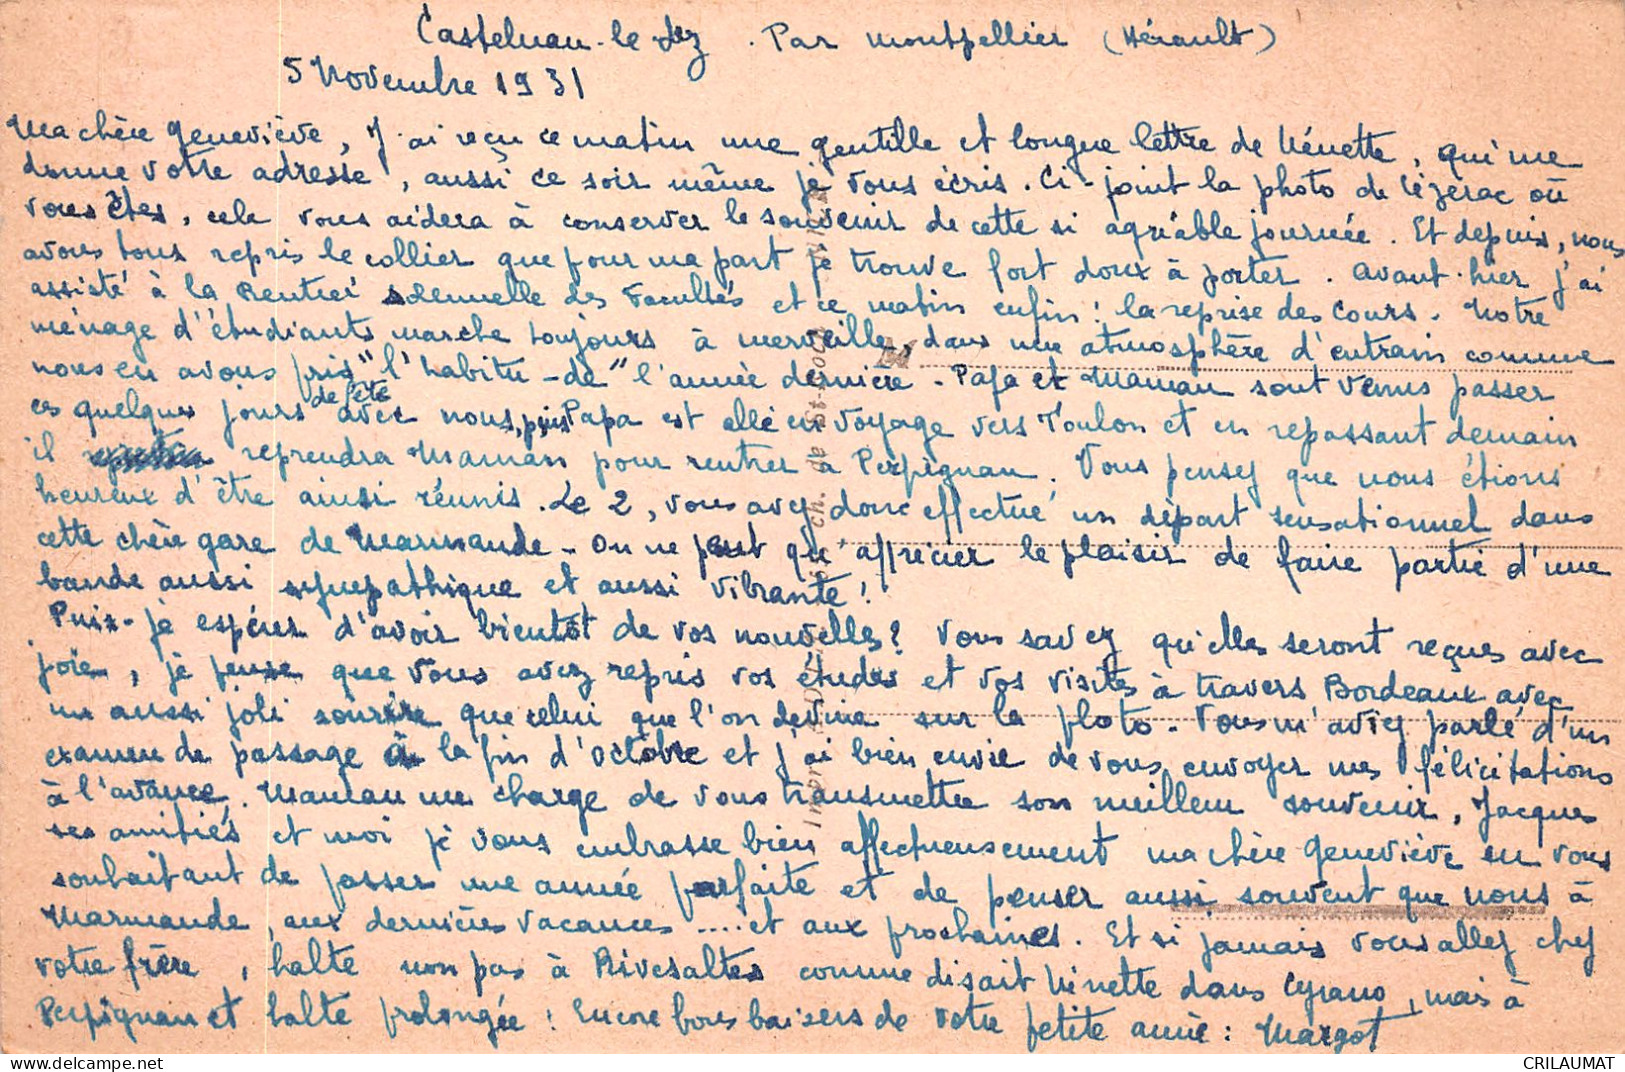 Castelnau-le-Lez. Par Montpellier (Hérault)
5 Novembre 1931
Ma chère Geneviève, J'ai reçu ce matin une gentille et longue lettre de Nénette, qui me
donne votre adresse, aussi ce soir même je vous écris. Ci-joint la photo de Cézerac où
vous êtes, cela vous aidera à conserver le souvenir de cette si agréable journée. Et depuis, nous
avons tous repris le collier que pour ma part je trouve fort doux à porter. Avant-hier j'ai
assisté à la Rentrée solennelle des Facultés et ce matin enfin! la reprise des Cours. Notre
ménage d'étudiants marche toujours à merveille, dans une atmosphère d'entrain comme
nous en avons pris "l'habitu-de" l'année dernière. Papa et Maman sont venus passer
ces quelques jours de fête avec nous, puis Papa est allé en voyage vers Toulon et en repassant demain
il reprendra Maman pour rentrer à Perpignan. Vous pensez que nous étions
heureux d'être ainsi réunis. Le 2, vous avez donc effectué un départ sensationnel dans
cette chère gare de Marmande. On ne peut qu'apprécier le plaisir de faire partie d'une
bande aussi sympathique et aussi vibrante!
Puis-je espérer d'avoir bientôt de vos nouvelles? Vous savez qu'elles seront reçues avec
joie, je pense que vous avez repris vos études et vos visites à travers Bordeaux avec
un aussi joli sourire que celui que l'on devine sur la photo. Vous m'aviez parlé d'un
examen de passage à la fin d'Octobre et j'ai bien envie de vous envoyer mes félicitations
à l'avance. Maman me charge de vous transmettre son meilleur souvenir, Jacques
ses amitiés et moi je vous embrasse bien affectueusement ma chère Geneviève en vous
souhaitant de passer une année parfaite et de penser aussi souvent que nous à
Marmande, aux dernières vacances ..... et aux prochaines. Et si jamais vous allez chez
votre frère, halte non pas à Rivesaltes comme disait Nénette dans Cyrano, mais à
Perpignan et halte prolongée! Encore bons baisers de votre petite amie: Margot
M
Impr.
ch. de St-
CRILAUMAT
delcampe.net